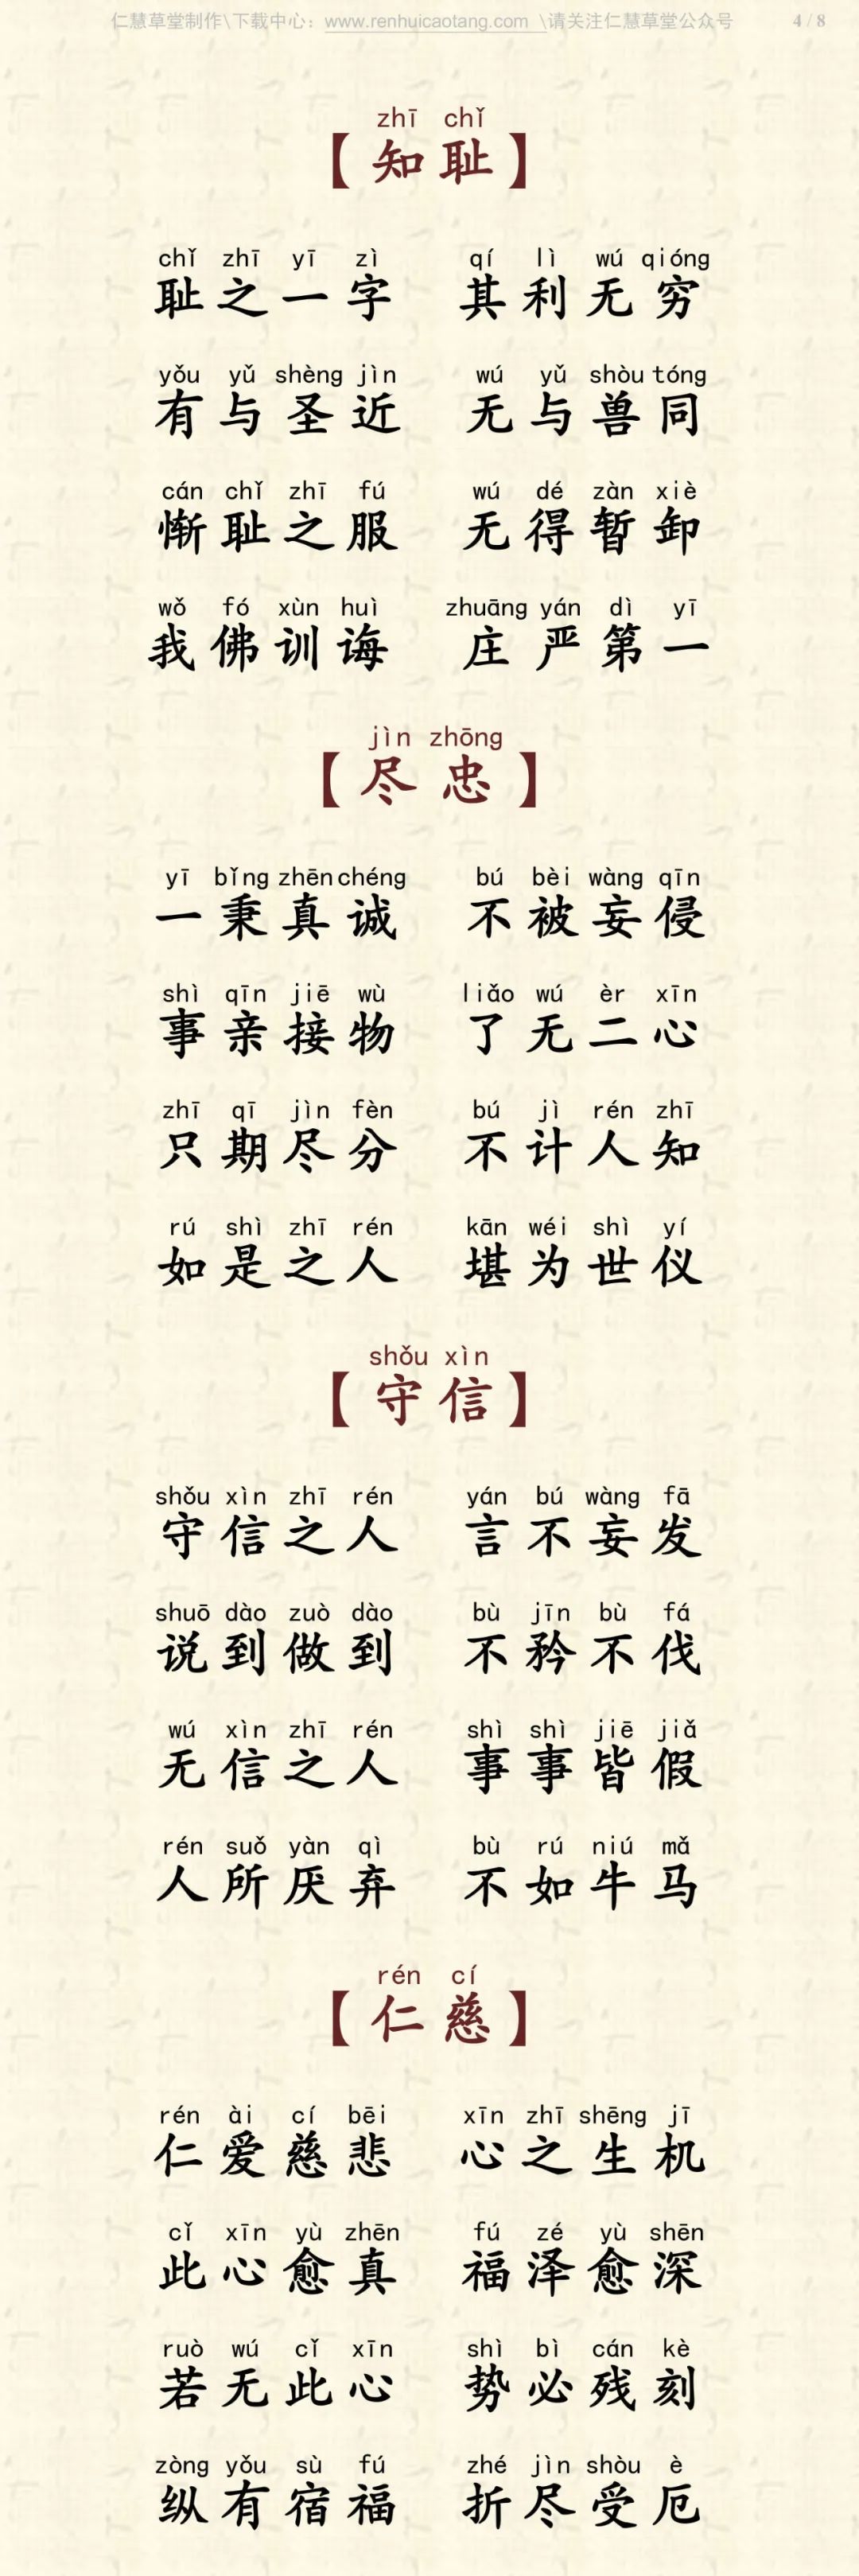 仁慧草堂制作\下载中心：www.renhuicaotang.com \请关注仁慧草堂公众号 4 / 8
zhī chǐ
【知耻】
chǐ zhī yī zì qí lì wú qióng
耻之一字 其利无穷
yǒu yǔ shèng jìn wú yǔ shòu tóng
有与圣近 无与兽同
cán chǐ zhī fú wú dé zàn xiè
惭耻之服 无得暂卸
wǒ fó xùn huì zhuāng yán dì yī
我佛训诲 庄严第一
jìn zhōng
【尽忠】
yī bǐng zhēn chéng bú bèi wàng qīn
一秉真诚 不被妄侵
shì qīn jiē wù liǎo wú èr xīn
事亲接物 了无二心
zhī qī jìn fèn bú jì rén zhī
只期尽分 不计人知
rú shì zhī rén kān wéi shì yí
如是之人 堪为世仪
shǒu xìn
【守信】
shǒu xìn zhī rén yán bú wàng fā
守信之人 言不妄发
shuō dào zuò dào bù jīn bù fá
说到做到 不矜不伐
wú xìn zhī rén shì shì jiē jiǎ
无信之人 事事皆假
rén suǒ yàn qì bù rú niú mǎ
人所厌弃 不如牛马
rén cí
【仁慈】
rén ài cí bēi xīn zhī shēng jī
仁爱慈悲 心之生机
cǐ xīn yù zhēn fú zé yù shēn
此心愈真 福泽愈深
ruò wú cǐ xīn shì bì cán kè
若无此心 势必残刻
zòng yǒu sù fú zhé jìn shòu è
纵有宿福 折尽受厄